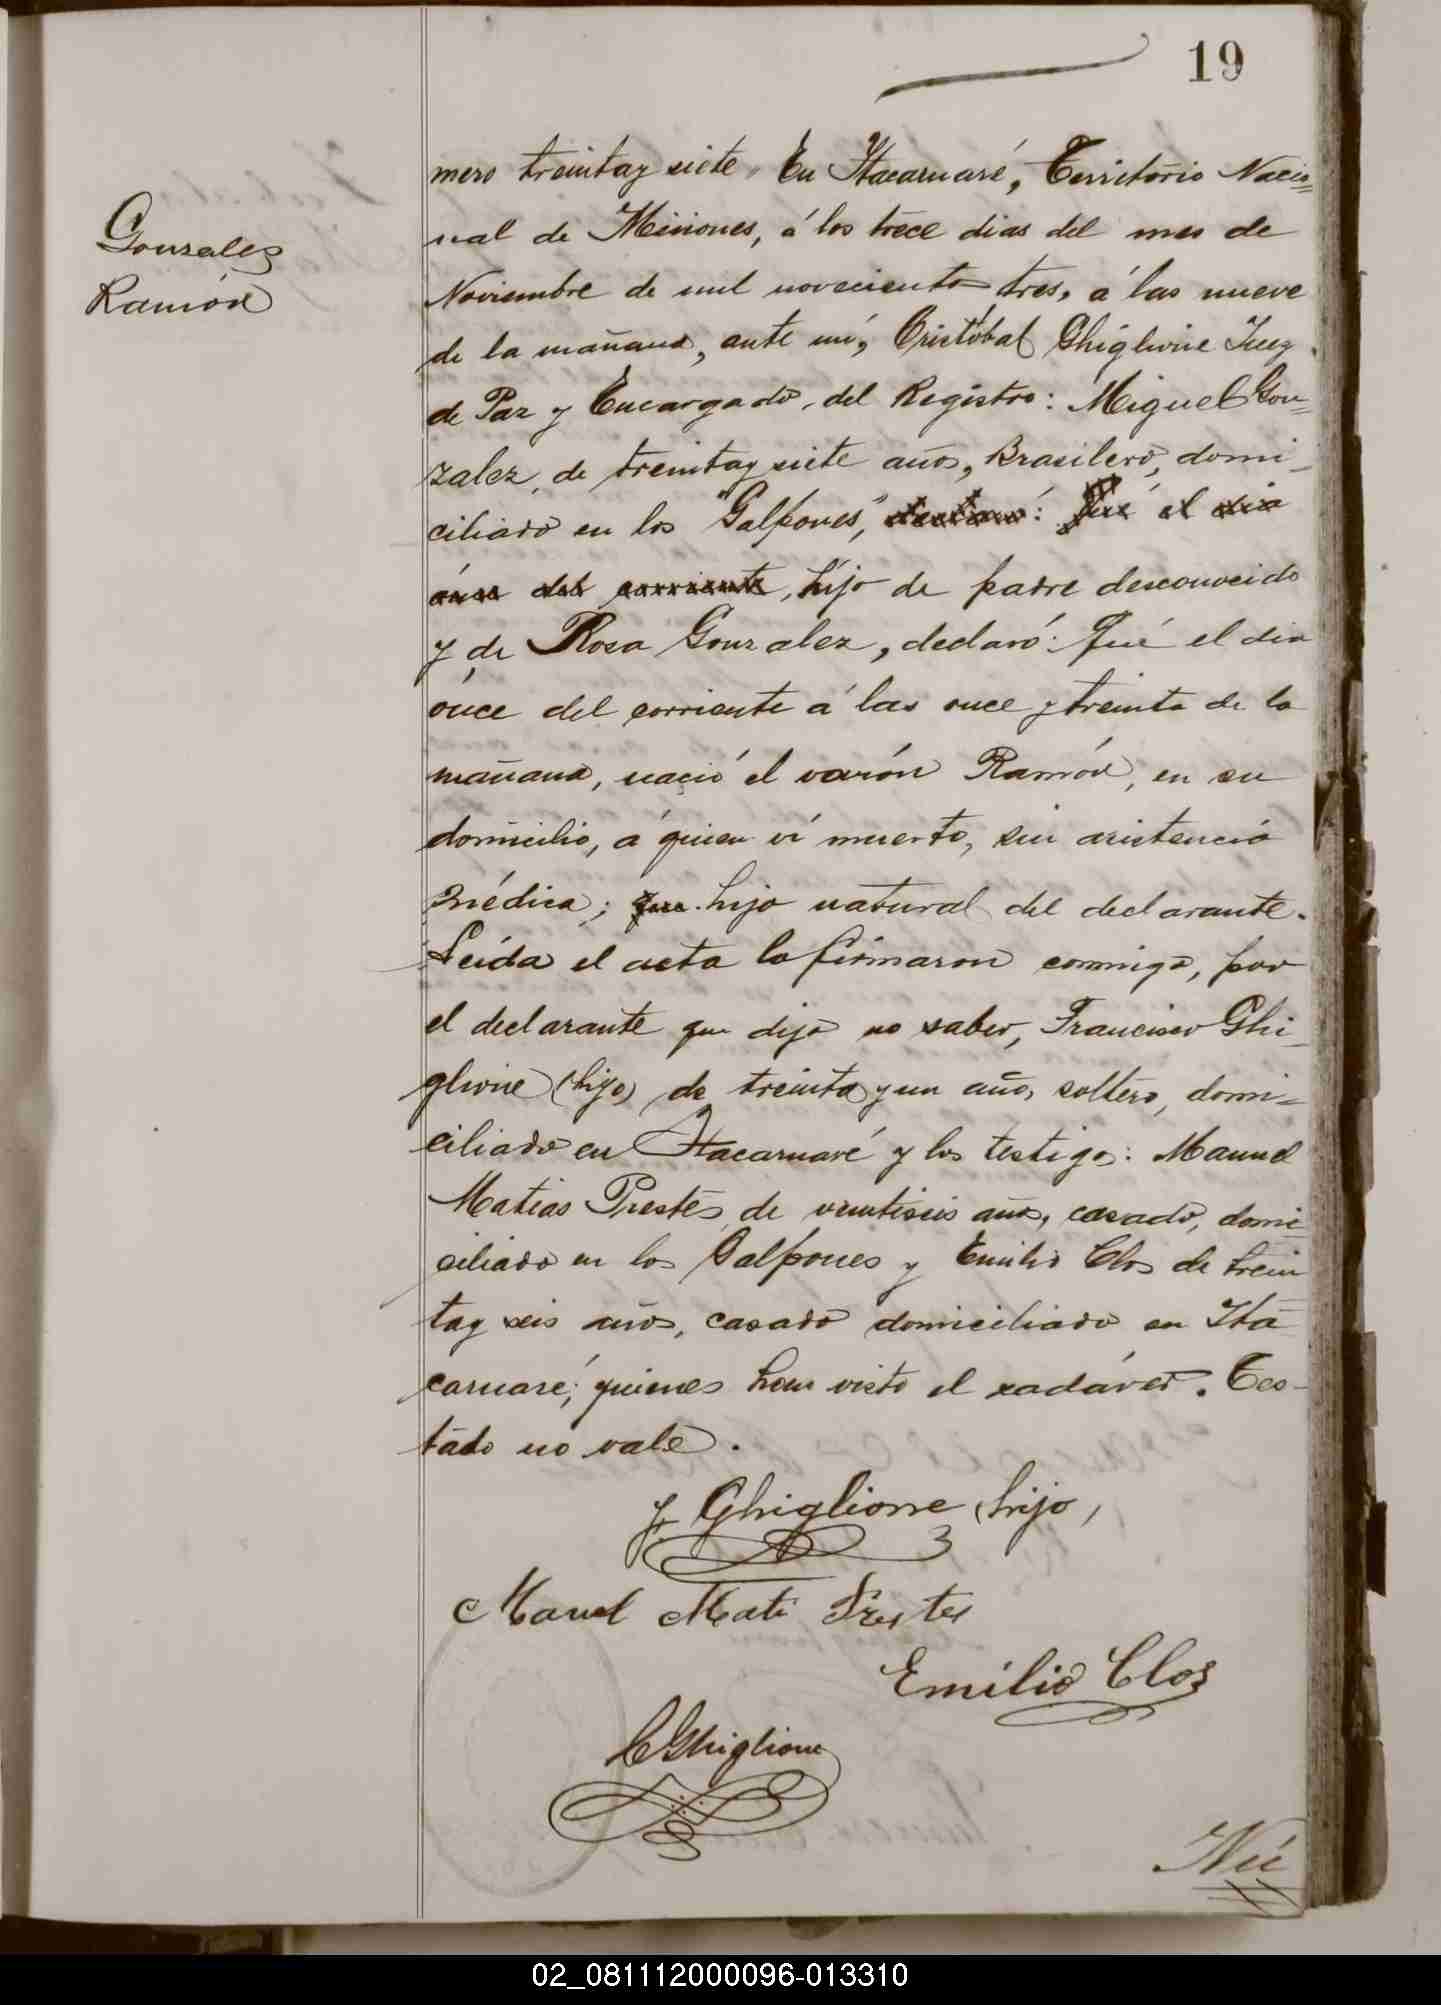 19
Gonzales
Ramón
mero treintay siete. En Itacaruaré, Territorio Nacio=
nal de Misiones, á los trece dias del mes de
Noviembre de mil novecientos tres, á las nueve
de la mañana, ante mí, Cristóbal Ghiglione Juez
de Paz y Encargado del Registro: Miguel Gon=
zalez, de treintay siete años, Brasilero, domi-
ciliado en los "Galpones," declaró: Qué el dia
ónce del corriente, hijo de padre desconocido
y de Rosa Gonzalez, declaró: Qué el dia
ónce del corriente á las once y treinta de la
mañana, nació el varón Ramón, en su
domicilio, á quien ví muerto, sin asistencia
médica; que hijo natural del declarante.
Leída el acta la firmaron conmigo, por
el declarante que dijo no saber, Francisco Ghi-
glione (hijo) de treinta y un años, soltero, domi=
ciliado en Itacaruaré y los testigos: Manuel
Matias Prestes de veintiseis años, casado, domi=
ciliado en los Galpones y Emilio Clos de trein
tay seis años, casado domiciliado en Ita
caruaré; quienes han visto el cadáver. Tes-
tado no vale.
F Ghiglione (hijo)
Manuel Mati Prestes
Emilio Clos
CGhiglione
Nú
02_081112000096-013310